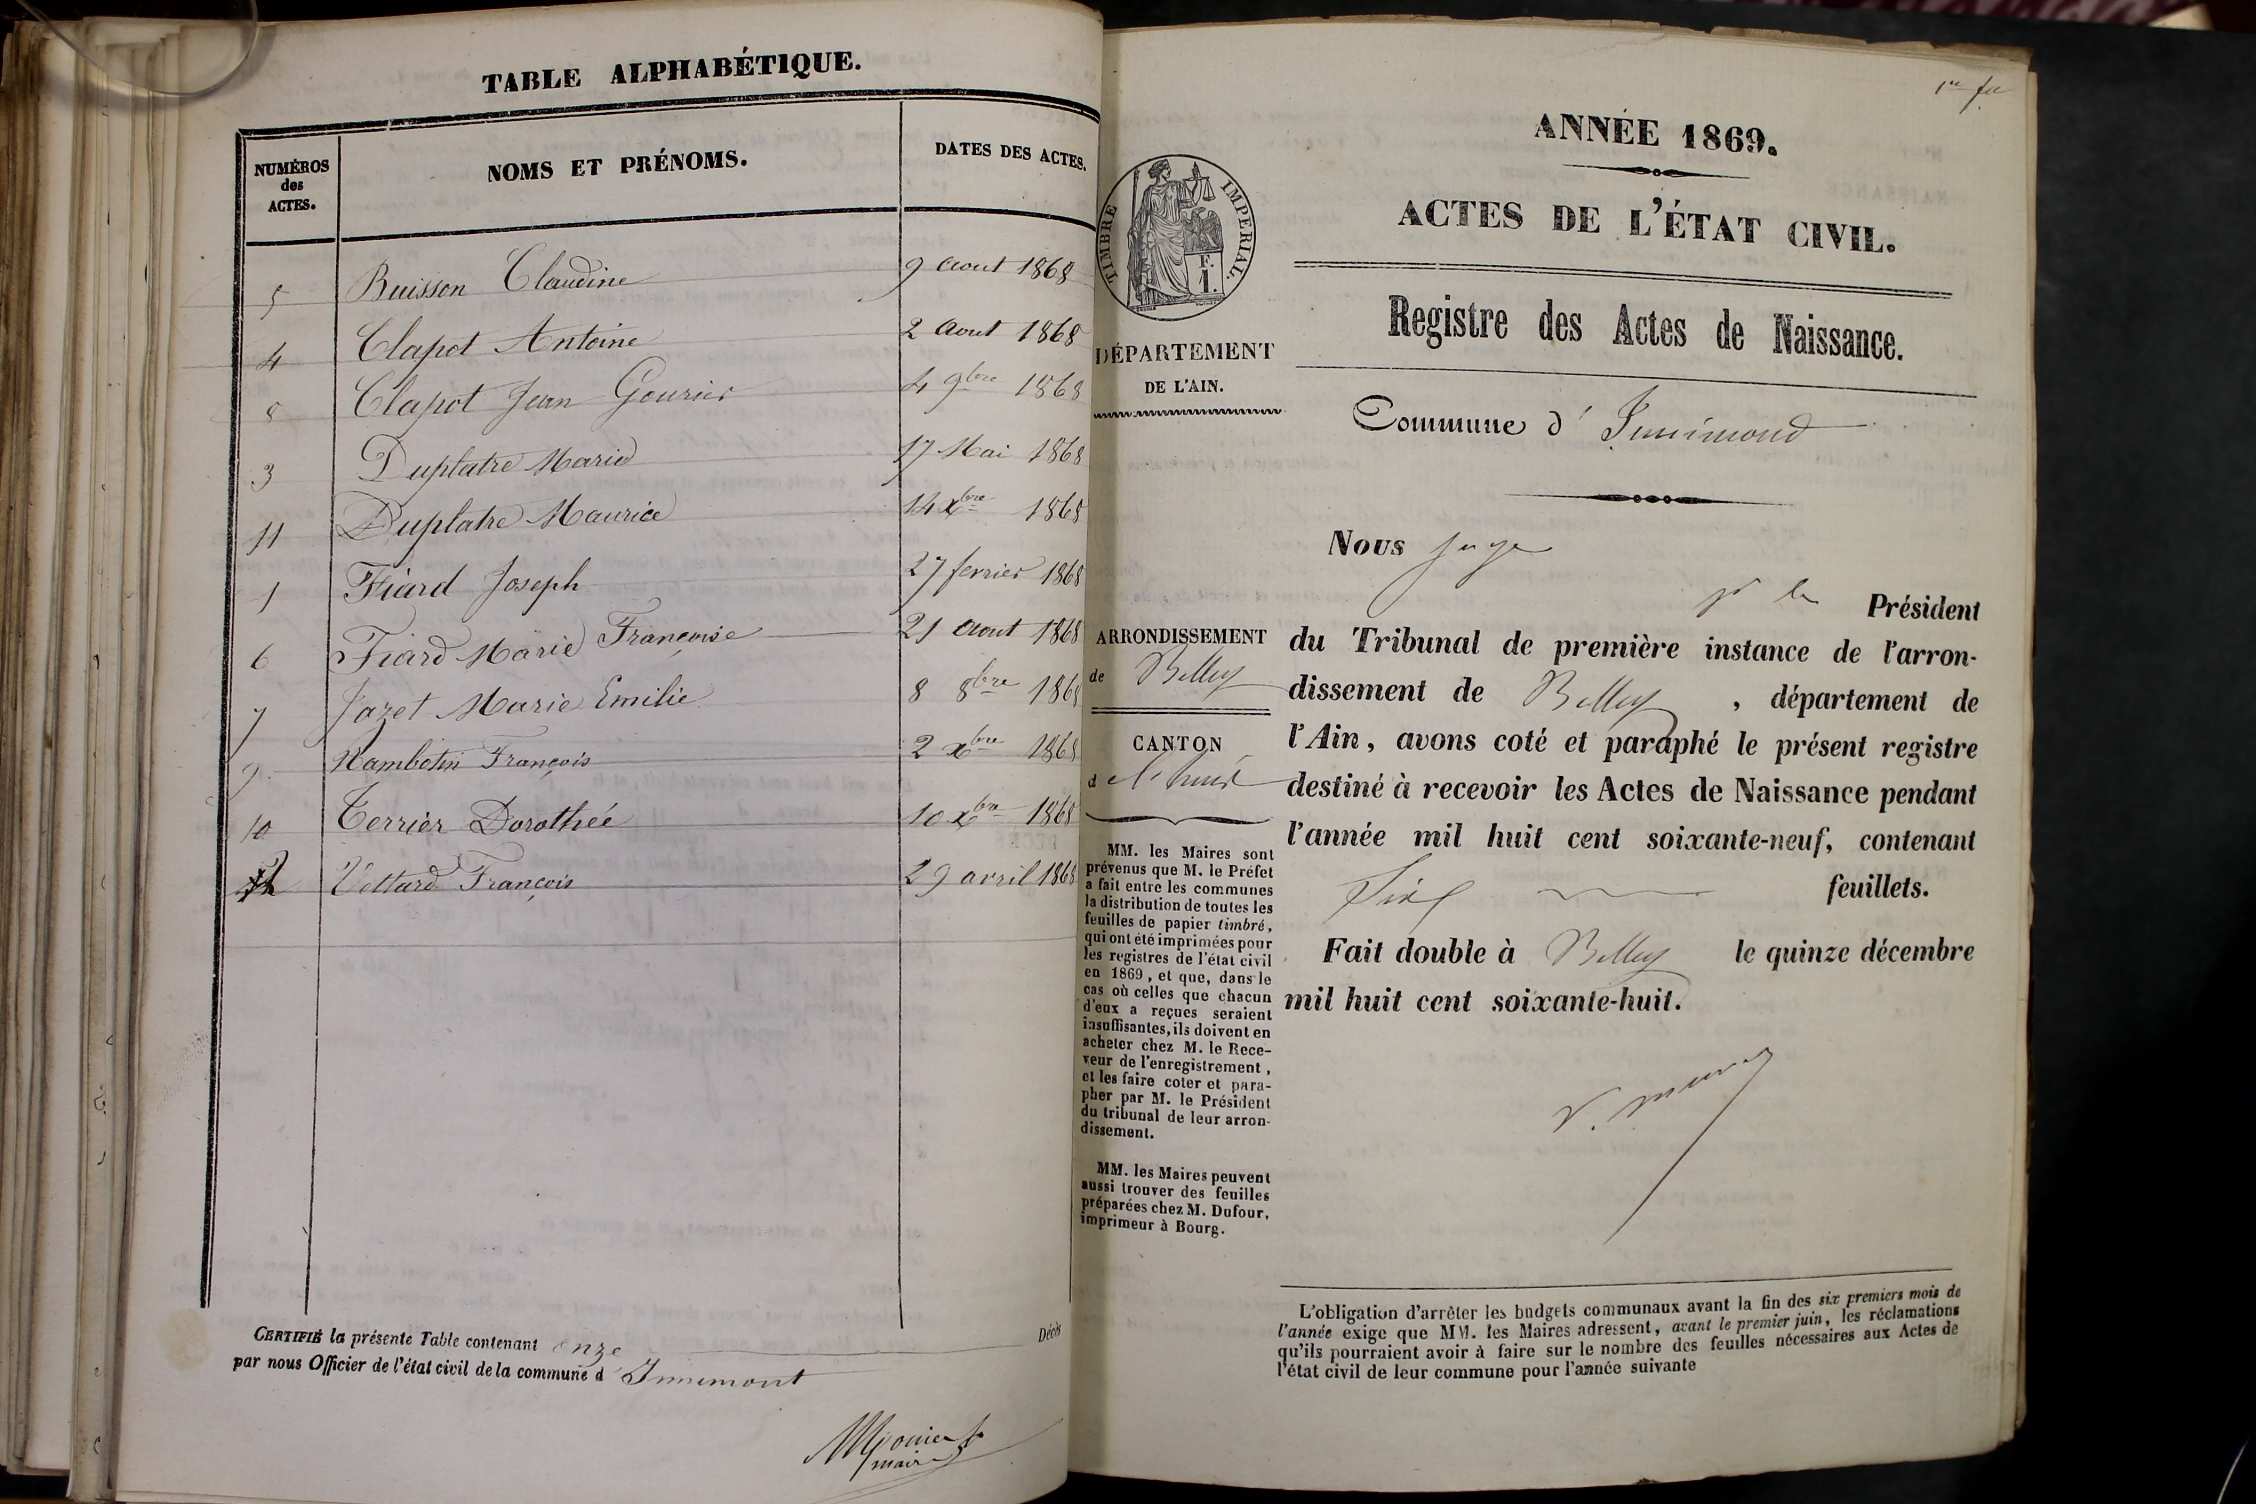 TABLE ALPHABÉTIQUE.
NUMÉROS des ACTES.
NOMS ET PRÉNOMS.
DATES DES ACTES.
5 Buisson Claudine 9 Aout 1868
4 Clapot Antoine 2 Aout 1868
8 Clapot Jean Gourier 4 9bre 1868
3 Duplatre Marie 17 Mai 1868
11 Duplatre Maurice 14 Xbre 1868
1 Fiard Joseph 27 fevrier 1868
6 Fiard Marie Françoise 21 Aout 1868
7 Jazet Marie Emilie 8 8bre 1868
9 Rambotin François 2 Xbre 1868
10 Terrier Dorothée 10 Xbre 1868
2 Vettard François 29 avril 1868
CERTIFIÉ la présente Table contenant onze Décès
par nous Officier de l'état civil de la commune d'Innimont
maire
1er
TIMBRE IMPÉRIAL.
F.
1.
DÉPARTEMENT
DE L'AIN.
ARRONDISSEMENT
de Belley
CANTON
d
MM. les Maires sont
prévenus que M. le Préfet
a fait entre les communes
la distribution de toutes les
feuilles de papier timbré,
qui ont été imprimées pour
les registres de l'état civil
en 1869, et que, dans le
cas où celles que chacun
d'eux a reçues seraient
insuffisantes, ils doivent en
acheter chez M. le Rece-
veur de l'enregistrement,
et les faire coter et para-
pher par M. le Président
du tribunal de leur arron-
dissement.
MM. les Maires peuvent
aussi trouver des feuilles
préparées chez M. Dufour,
imprimeur à Bourg.
ANNÉE 1869.
ACTES DE L'ÉTAT CIVIL.
Registre des Actes de Naissance.
Commune d'Innimond
Nous Juge
pr le Président
du Tribunal de première instance de l'arron-
dissement de Belley, département de
l'Ain, avons coté et paraphé le présent registre
destiné à recevoir les Actes de Naissance pendant
l'année mil huit cent soixante-neuf, contenant
Six feuillets.
Fait double à Belley le quinze décembre
mil huit cent soixante-huit.
L'obligation d'arrêter les budgets communaux avant la fin des six premiers mois de
l'année exige que MM. les Maires adressent, avant le premier juin, les réclamations
qu'ils pourraient avoir à faire sur le nombre des feuilles nécessaires aux Actes de
l'état civil de leur commune pour l'année suivante